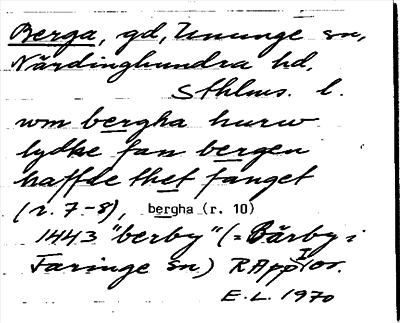 Berga, gd, Ununge sn,
Närdinghundra hd,
Sthlms. l.
wm bergha hurw
lydhe fan bergen
haffde thet fanget
(r. 7-8), bergha (r. 10)
1443 "berby" (= Bärby i
Faringe sn) RApp
E.L. 1970